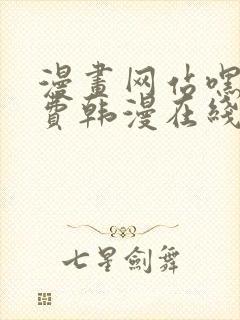 漫畫网站嘿
費韩漫在綫
七星劍舞